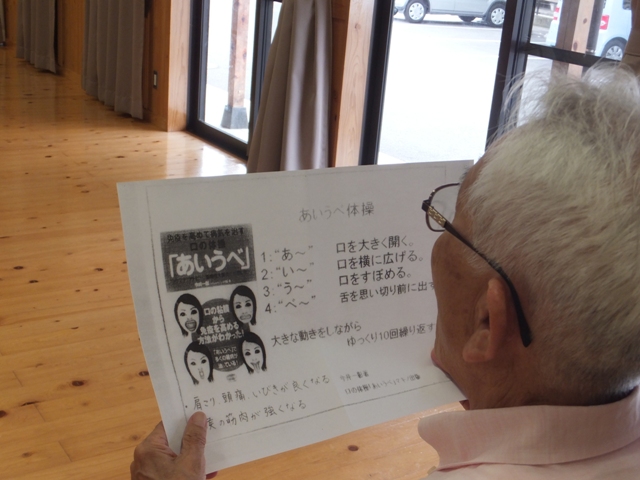 あいうべ体操
免疫を高めて病気を治す
口の体操
「あいうべ」
1：“あ～” 口を大きく開く。
2：“い～” 口を横に広げる。
3：“う～” 口をすぼめる。
4：“べ～” 舌を思い切り前に出す
口の粘膜
から
免疫を高める
方法がわかった!
大きな動きをしながら
ゆっくり10回繰り返す
・肩こり 頭痛 いびきが良くなる
の筋肉が強くなる
今井一彰著